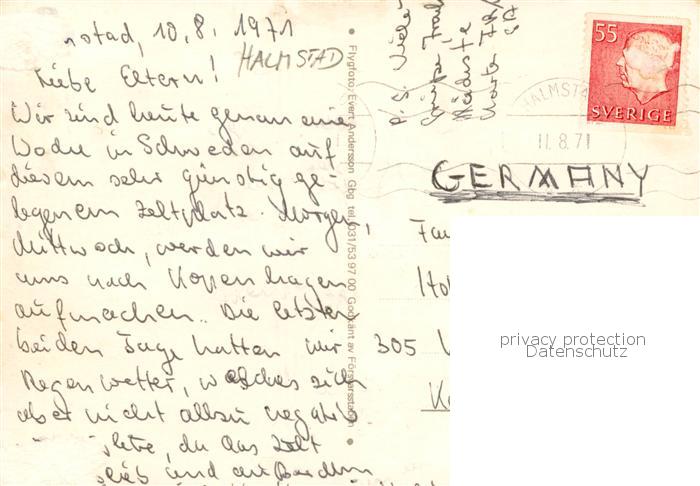 stad, 10.8.1971
HALMSTAD
Liebe Eltern!
Wir sind heute genau eine
Woche in Schweden auf
diesem sehr günstig ge-
legenem Zeltplatz. Morgen,
Mittwoch, werden wir
uns nach Kopenhagen
aufmachen. Die letzten
beiden Tage hatten wir
Regenwetter, welches sich
aber nicht allzu negativ
da das Zelt
und
Flygfoto: Evert Andersson Gbg tel. 031/53 97 00 Godkänt av Försvarsstaben
P.S. Viele
Grüße
Nächste
Karte
55
SVERIGE
HALMSTA
11.8.71
GERMANY
Fa
305
privacy protection
Datenschutz